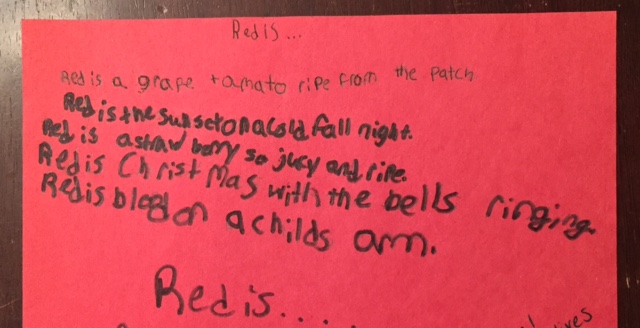 Red is...
Red is a grape tamato ripe from the patch
Red is the sunset on a cold fall night.
Red is a straw berry so jucy and ripe.
Red is Christmas with the bells ringing.
Red is blood on a childs arm.
Red is....